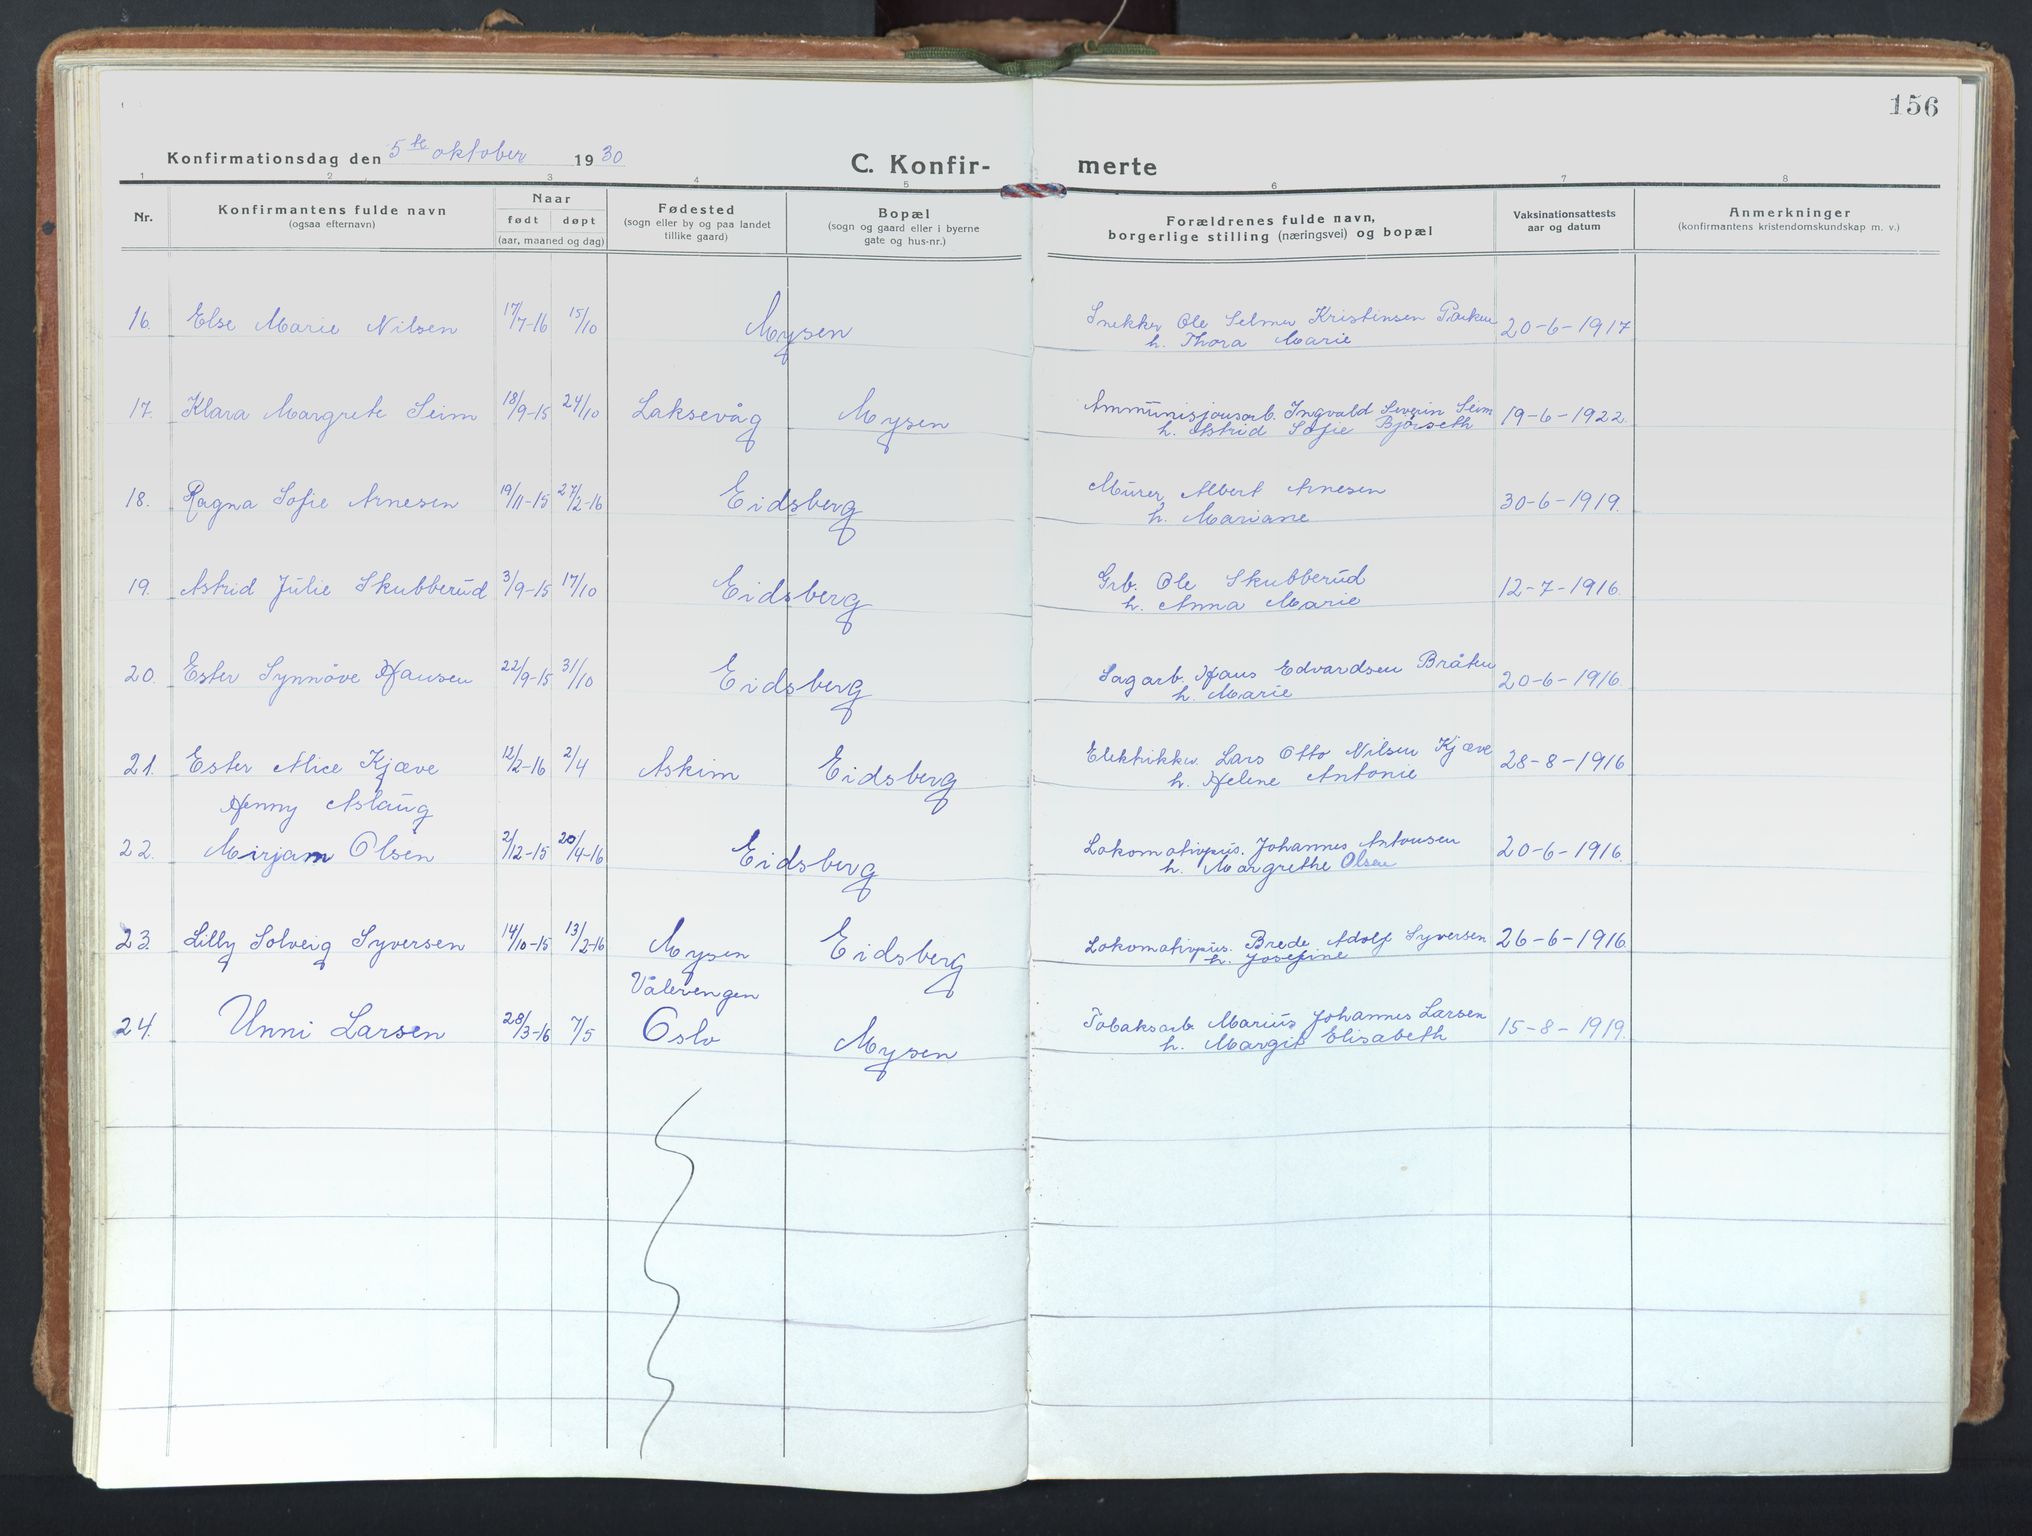 156
Konfirmationsdag den 5te oktober 1930
C. Konfir- merte
1 2 3 4 5 6 7 8
Nr.
Konfirmantens fulde navn
(ogsaa efternavn)
Naar
født døpt
(aar, maaned og dag)
Fødested
(sogn eller by og paa landet
tillike gaard)
Bopæl
(sogn og gaard eller i byerne
gate og hus-nr.)
Forældrenes fulde navn,
borgerlige stilling (næringsvei) og bopæl
Vaksinationsattests
aar og datum
Anmerkninger
(konfirmantens kristendomskundskap m. v.)
16. Else Marie Nilsen 17/7-16 15/10 Mysen Snekker Ole Selmer Kristinsen 20-6-1917
h. Thora Marie
17. Klara Margrete Seim 18/9-15 24/10 Laksevåg Mysen Ammunisjonsarb. Ingvald Severin Seim 19-6-1922.
h. Astrid Sofie Bjørseth
18. Ragna Sofie Arnesen 19/11-15 27/2-16 Eidsberg Murer Albert Arnesen 30-6-1919.
h. Mariane
19. Astrid Julie Skubberud 3/9-15 17/10 Eidsberg Grb. Ole Skubberud 12-7-1916.
h. Anna Marie
20. Ester Synnöve Hansen 22/9-15 31/10 Eidsberg Sagarb. Hans Edvardsen Bråten 20-6-1916.
h. Marie
21. Ester Alice Kjæve 12/2-16 2/4 Askim Eidsberg Elektrikker Lars Otto Nilsen Kjæve 28-8-1916
h. Helene Antonie
Henny Aslaug
22. Mirjam Olsen 2/12-15 20/4-16 Eidsberg Lokomotivpus. Johannes Antonsen 20-6-1916.
h. Margrethe Olsen
23. Lilly Solveig Syversen 14/10-15 13/2-16 Mysen Eidsberg Lokomotivpus. Brede Adolf Syversen 26-6-1916.
h. Josefine
Vålerengen
24. Unni Larsen 28/3-16 7/5 Oslo Mysen Tobaksarb. Marius Johannes Larsen 15-8-1919.
h. Margit Elisabeth